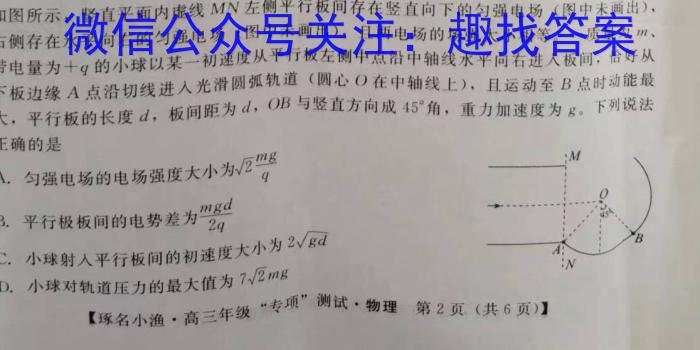 如图所示,竖直平面内虚线MN左侧平行板间存在竖直向下的匀强电场(图中未画出),
右侧存在水平向
微信公众号关注：趣找答案
带电量为+q的小球以某一初速度从平行板左侧中点沿中轴线水平向右进入板间,恰好从
下板边缘A点沿切线进入光滑圆弧轨道(圆心O在中轴线上),且运动至B点时动能最
大,平行板的长度d,板间距为d,OB与竖直方向成45°角,重力加速度为g。下列说法
正确的是
A. 匀强电场的电场强度大小为√2 mg/q
B. 平行极板间的电势差为 mgd/2q
C. 小球射入平行板间的初速度大小为2√gd
D. 小球对轨道压力的最大值为7√2mg
M
O
45°
A
B
N
【琢名小渔·高三年级“专项”测试·物理 第2页(共6页)】